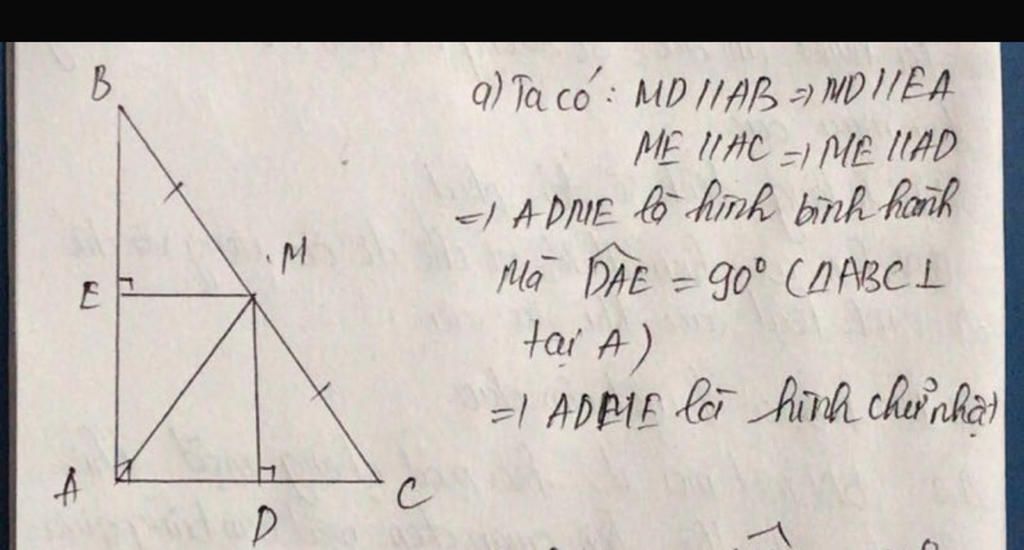 B
a) Ta có: MD // AB => MD // EA
ME // AC => ME // AD
=> ADME là hình bình hành
M
Mà DAE = 90° (ΔABC ⊥
E
tại A)
=> ADME là hình chữ nhật
A
D
C